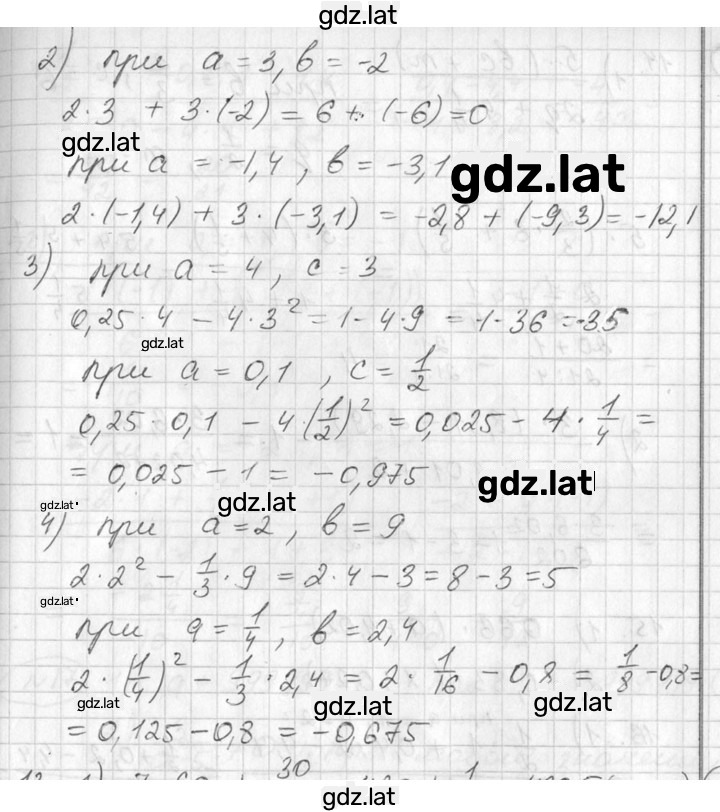 gdz.lat
2) при a = 3, b = -2
2·3 + 3·(-2) = 6 + (-6) = 0
gdz.lat
при a = -1,4, b = -3,1
gdz.lat
2·(-1,4) + 3·(-3,1) = -2,8 + (-9,3) = -12,1
3) при a = 4, c = 3
0,25·4 - 4·3² = 1 - 4·9 = 1 - 36 = -35
gdz.lat
при a = 0,1, c = 1/2
0,25·0,1 - 4·(1/2)² = 0,025 - 4·1/4 =
= 0,025 - 1 = -0,975
gdz.lat
gdz.lat
gdz.lat
4) при a = 2, b = 9
2·2² - 1/3·9 = 2·4 - 3 = 8 - 3 = 5
gdz.lat
при a = 1/4, b = 2,4
2·(1/4)² - 1/3·2,4 = 2·1/16 - 0,8 = 1/8 - 0,8 =
gdz.lat
gdz.lat
gdz.lat
= 0,125 - 0,8 = -0,675
30
gdz.lat